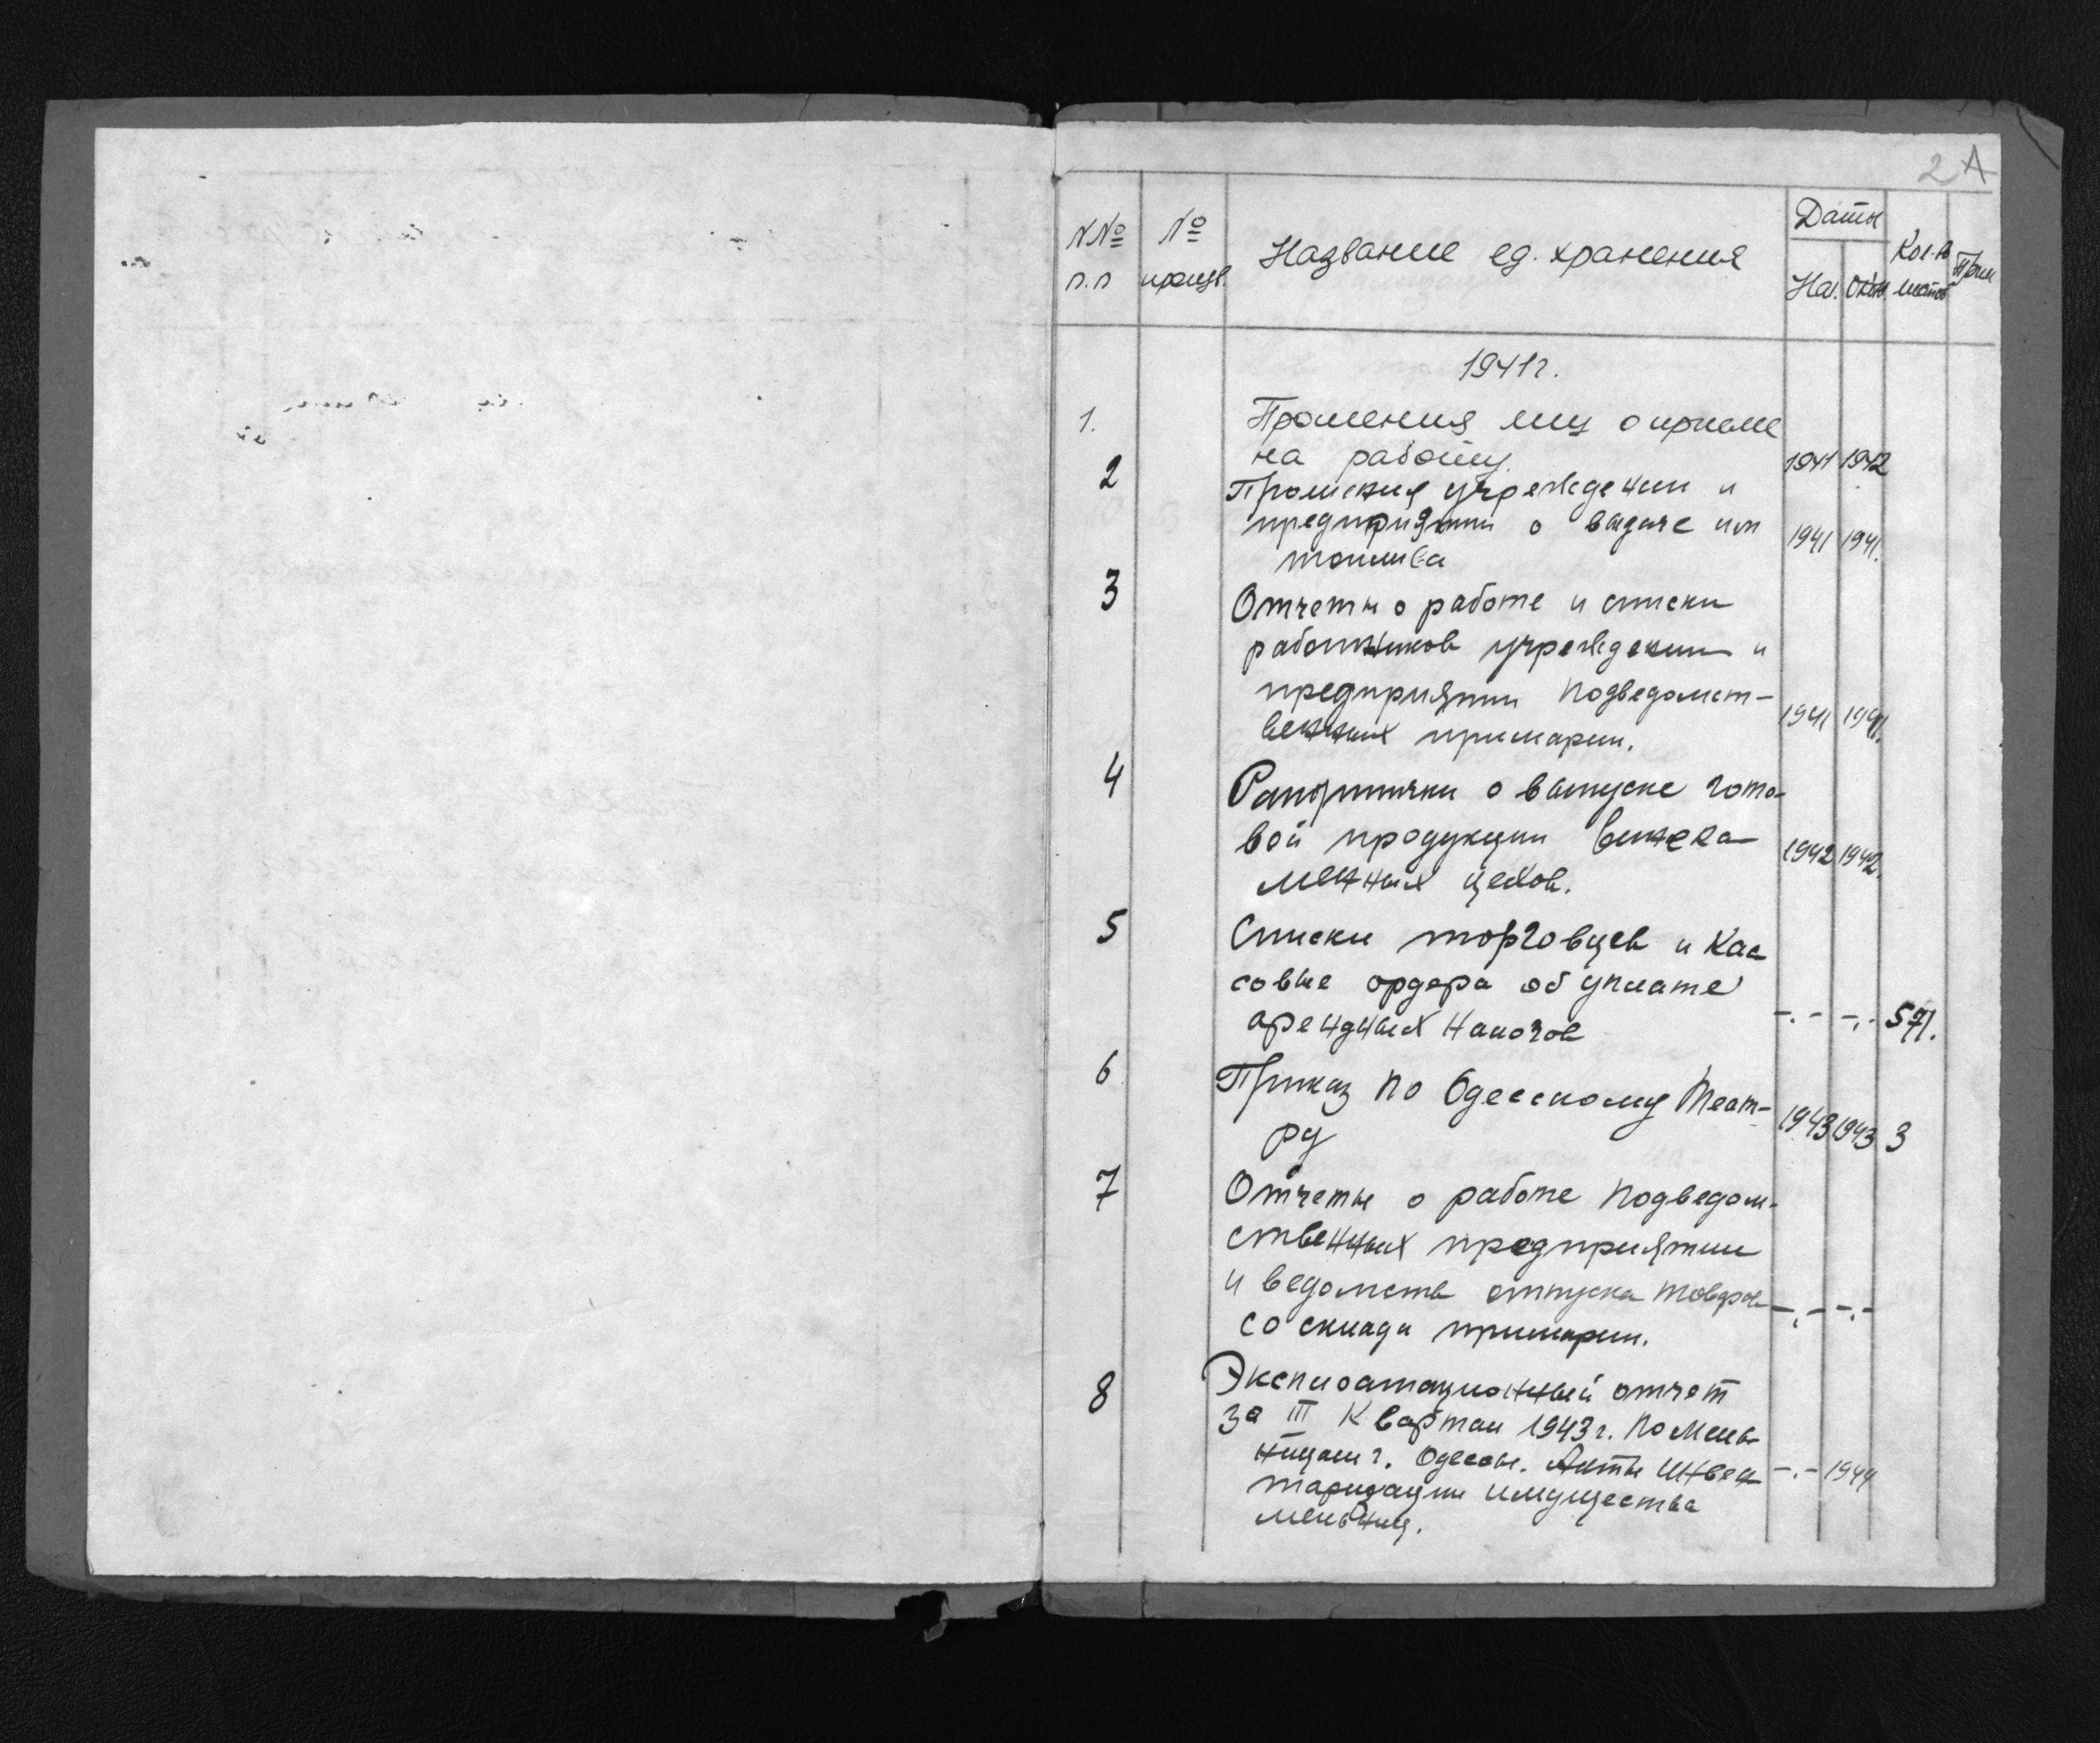 2 А
NNo
п.п
No
произв.
Название ед. хранения
Даты
На. Окон.
Кол-во
листов
Прим
1941г.
1. Прошения лиц о приеме
на работу. 1941 1942
2 Прошения учреждении и
предприятии о выдаче им 1941 1941.
топлива
3 Отчеты о работе и списки
работников учреждении и
предприятии подведомст-
венных примарии. 1941 1941.
4 Рапортички о выпуске гото-
вой продукции 1942 1942.
цехов.
5 Списки торговцев и Кас
совые ордера об уплате
арендных налогов -.- -.- 571.
6 Приказ по Одесскому Теат-
ру 1943 1943 3
7 Отчеты о работе подведом-
ственных предприятии
и ведомств отпуска товаров -.- -.-
со склада примарии.
8 Эксплоатационный отчет
за III Квартал 1943г. по мель
ницам г. Одессы. Акты инвен -.- 1944
таризации имущества
мельниц.